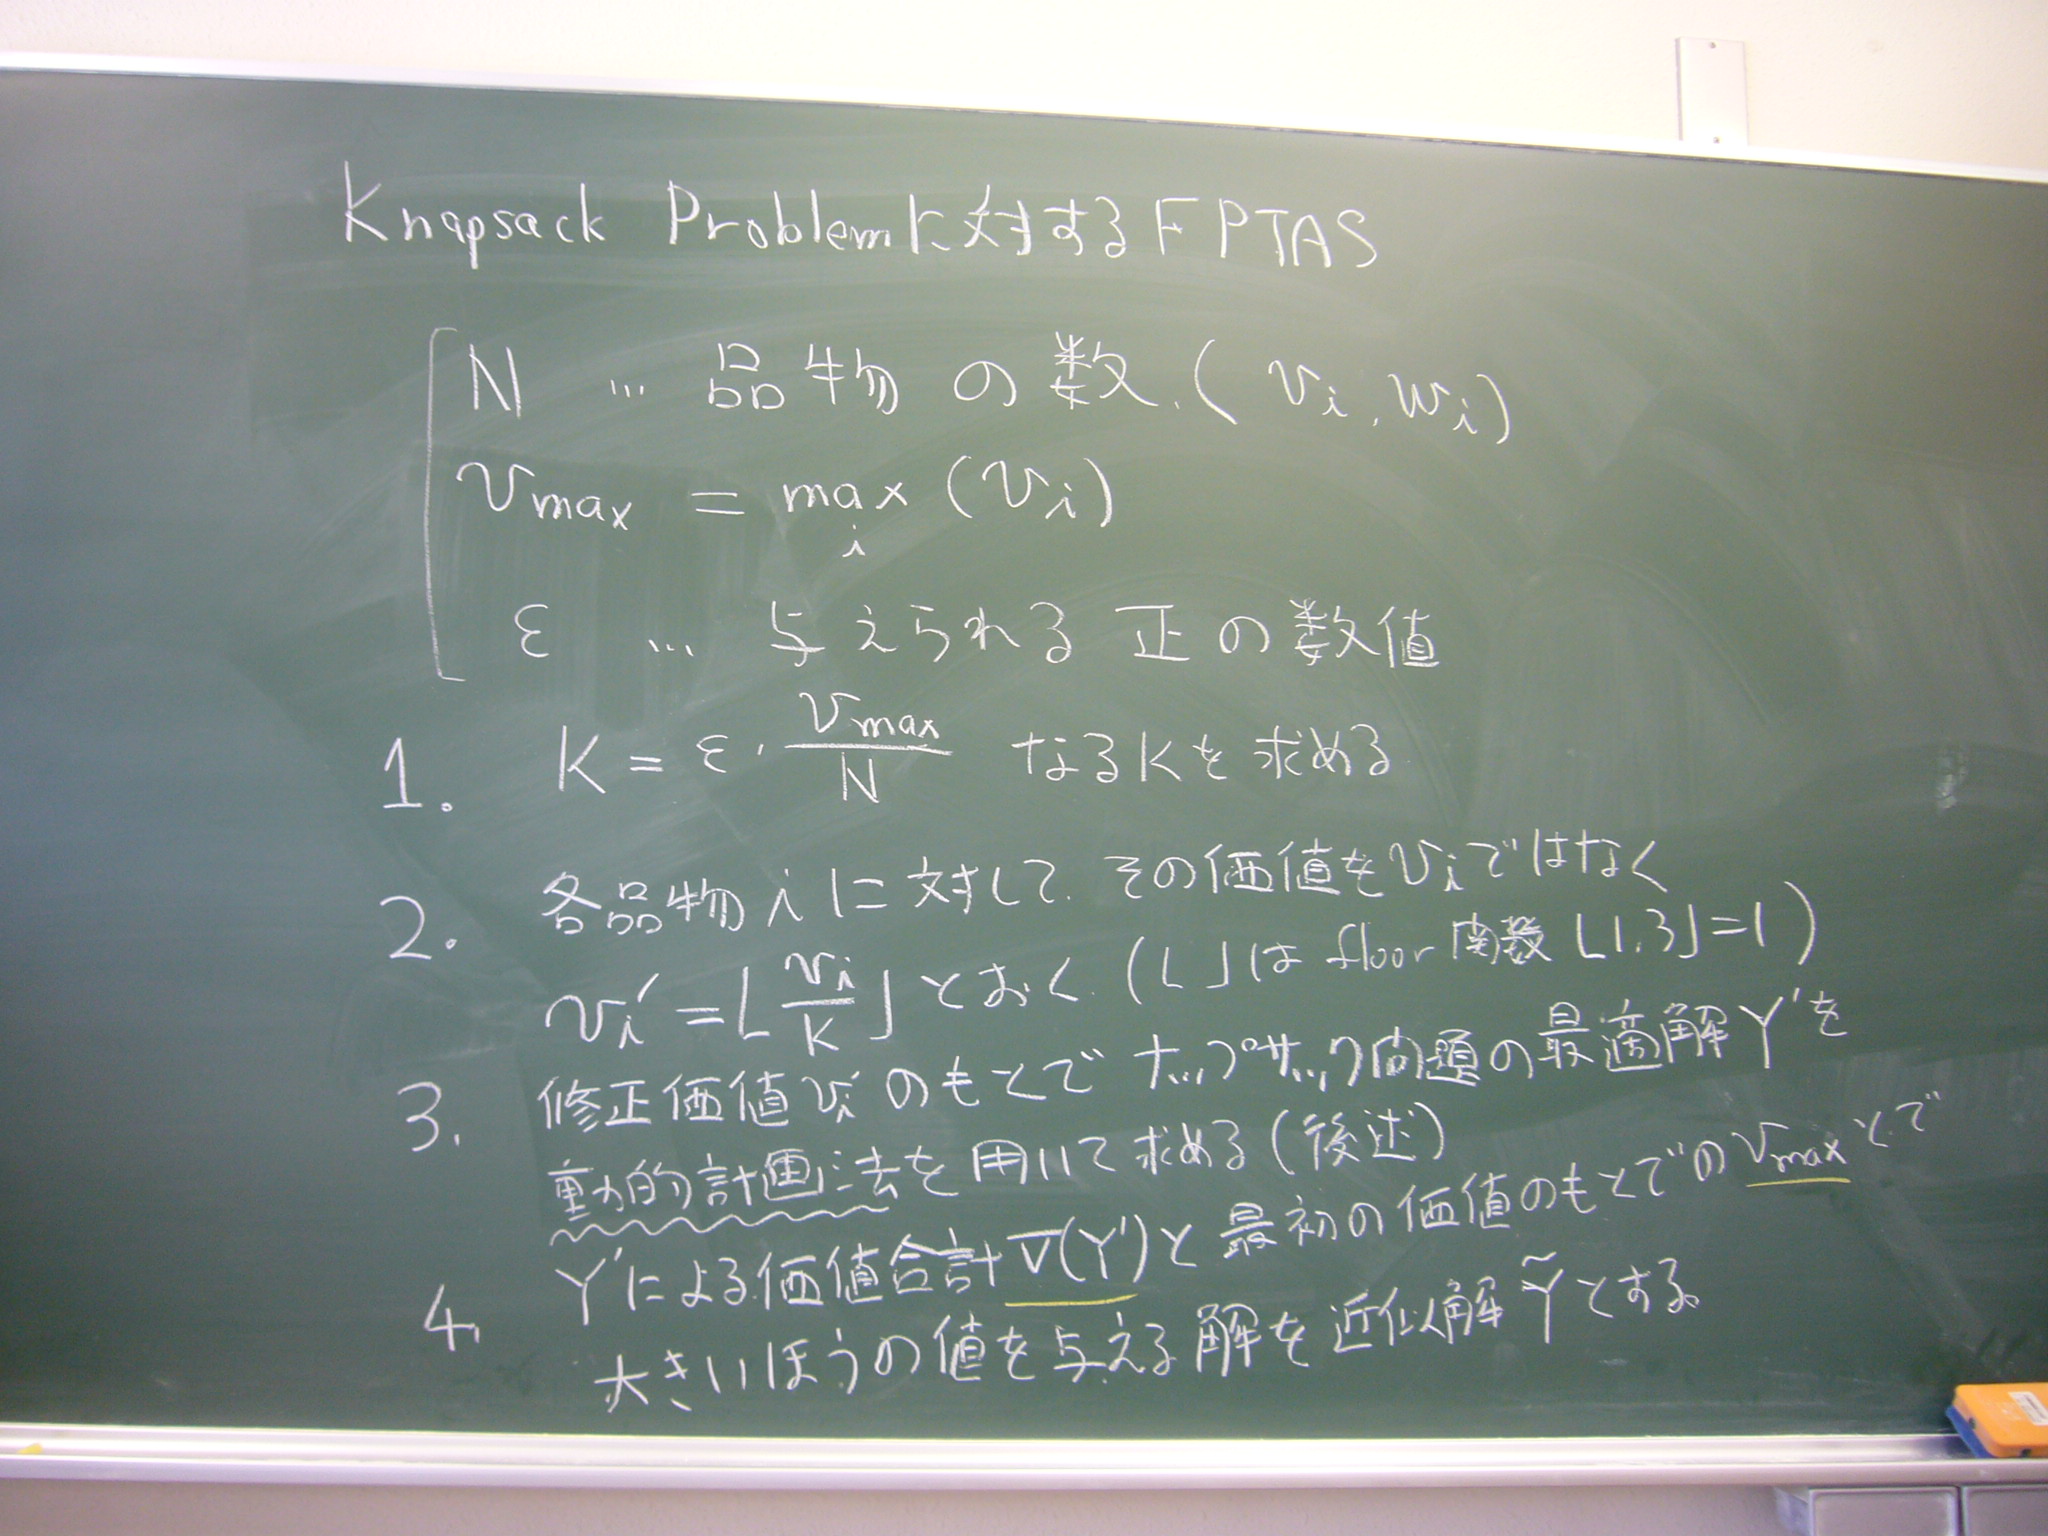 Knapsack Problemに対するFPTAS
N … 品物の数. (vi, wi)
vmax = max (vi)
i
ε … 与えられる正の数値
1. K = ε・vmax/N なるKを求める
2. 各品物iに対して. その価値をviではなく
vi' = ⌊vi/K⌋ とおく. (⌊ ⌋は floor関数 ⌊1.3⌋=1)
3. 修正価値vi'のもとでナップサック問題の最適解Y'を
動的計画法を用いて求める(後述)
4. Y'による価値合計V(Y')と最初の価値のもとでのvmaxとで
大きいほうの値を与える解を近似解Ỹとする。